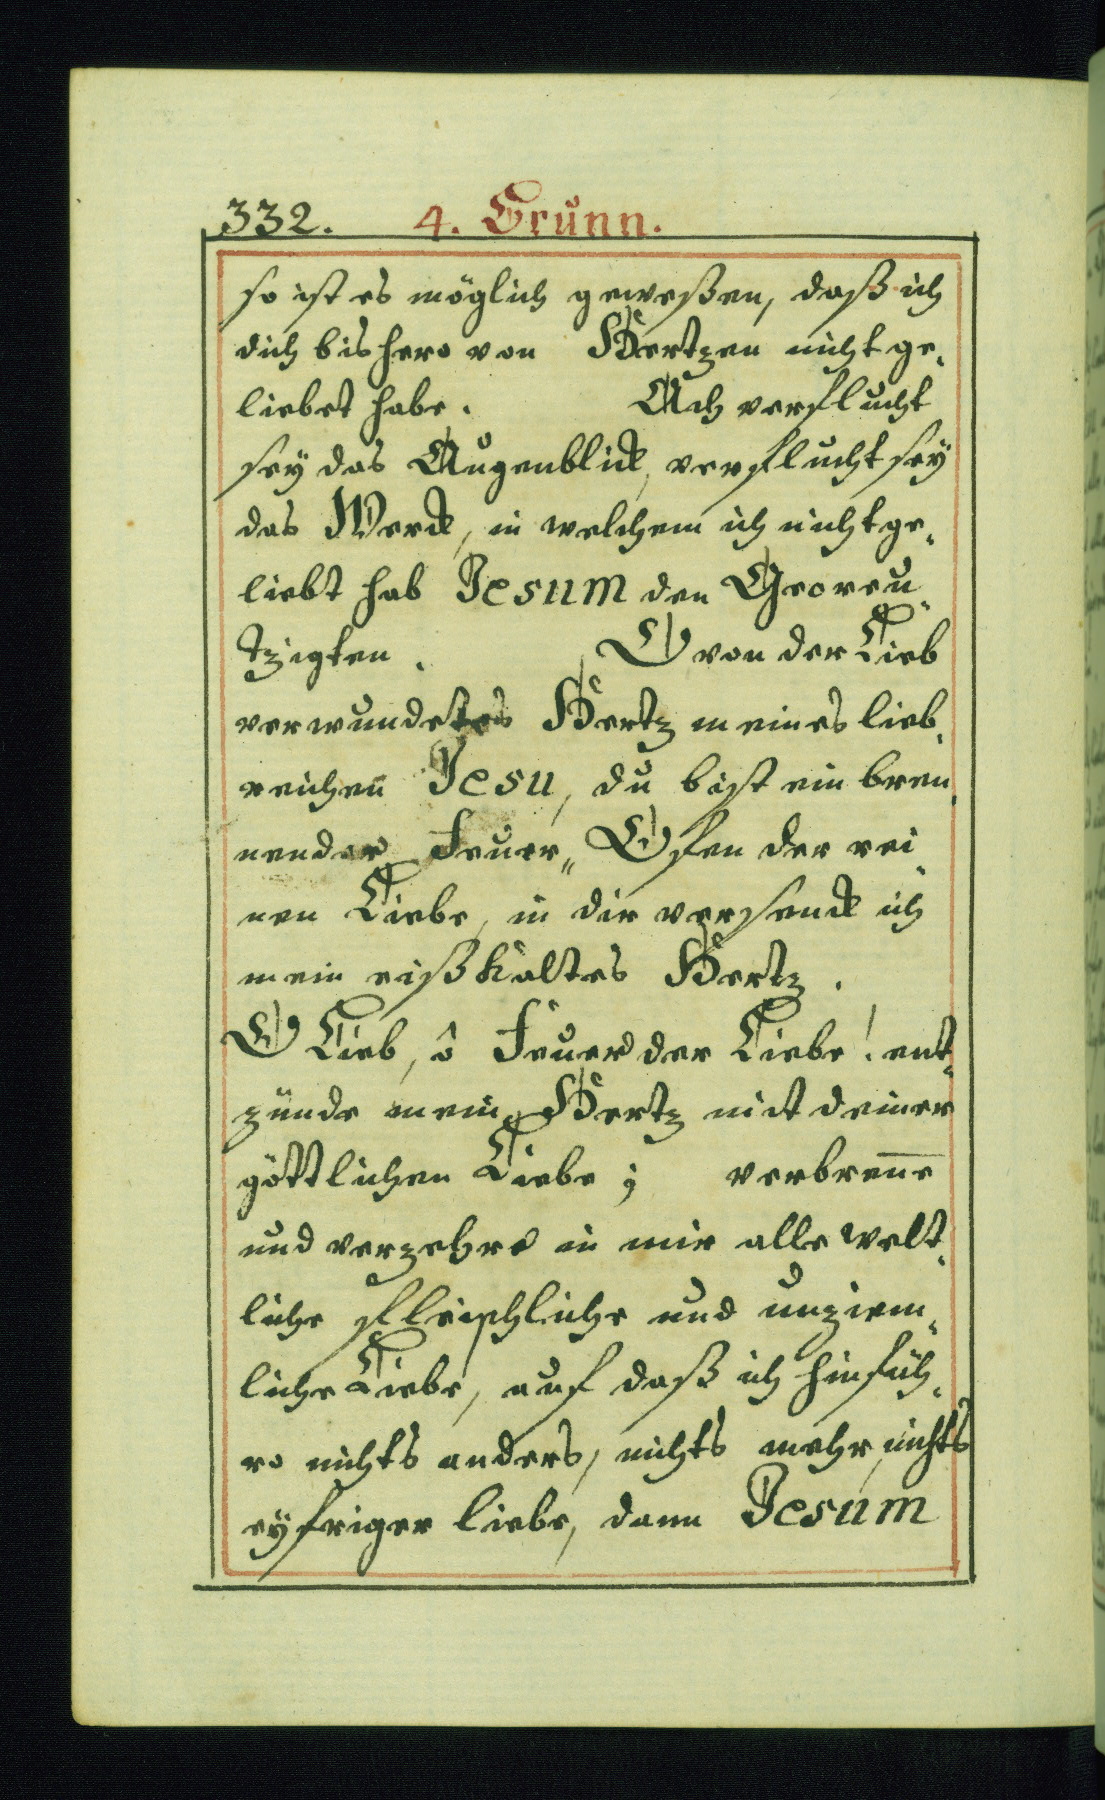 332. 4. Brunn.
so ist es möglich geweßen, daß ich
dich bishero von Hertzen nicht ge„
liebet habe. Ach verflucht
sey das Augenblick, verflucht sey
das Werck, in welchem ich nicht ge„
liebt hab Jesum den Gecreu„
tzigten. O von der Lieb
verwundetes Hertz meines lieb„
reichen Jesu, du bist ein bren„
nender Feuer„ Ofen der rei„
nen Liebe, in dir versenck ich
mein eißkaltes Hertz.
O Lieb, ô Feuer der Liebe! ent„
zünde mein Hertz mit deiner
göttlichen Liebe; verbren̅e
und verzehre in mir alle welt„
liche fleischliche und unziem„
liche Liebe, auf daß ich hinfüh„
ro nichts anders, nichts mehr, nichts
eyfriger liebe, dann Jesum